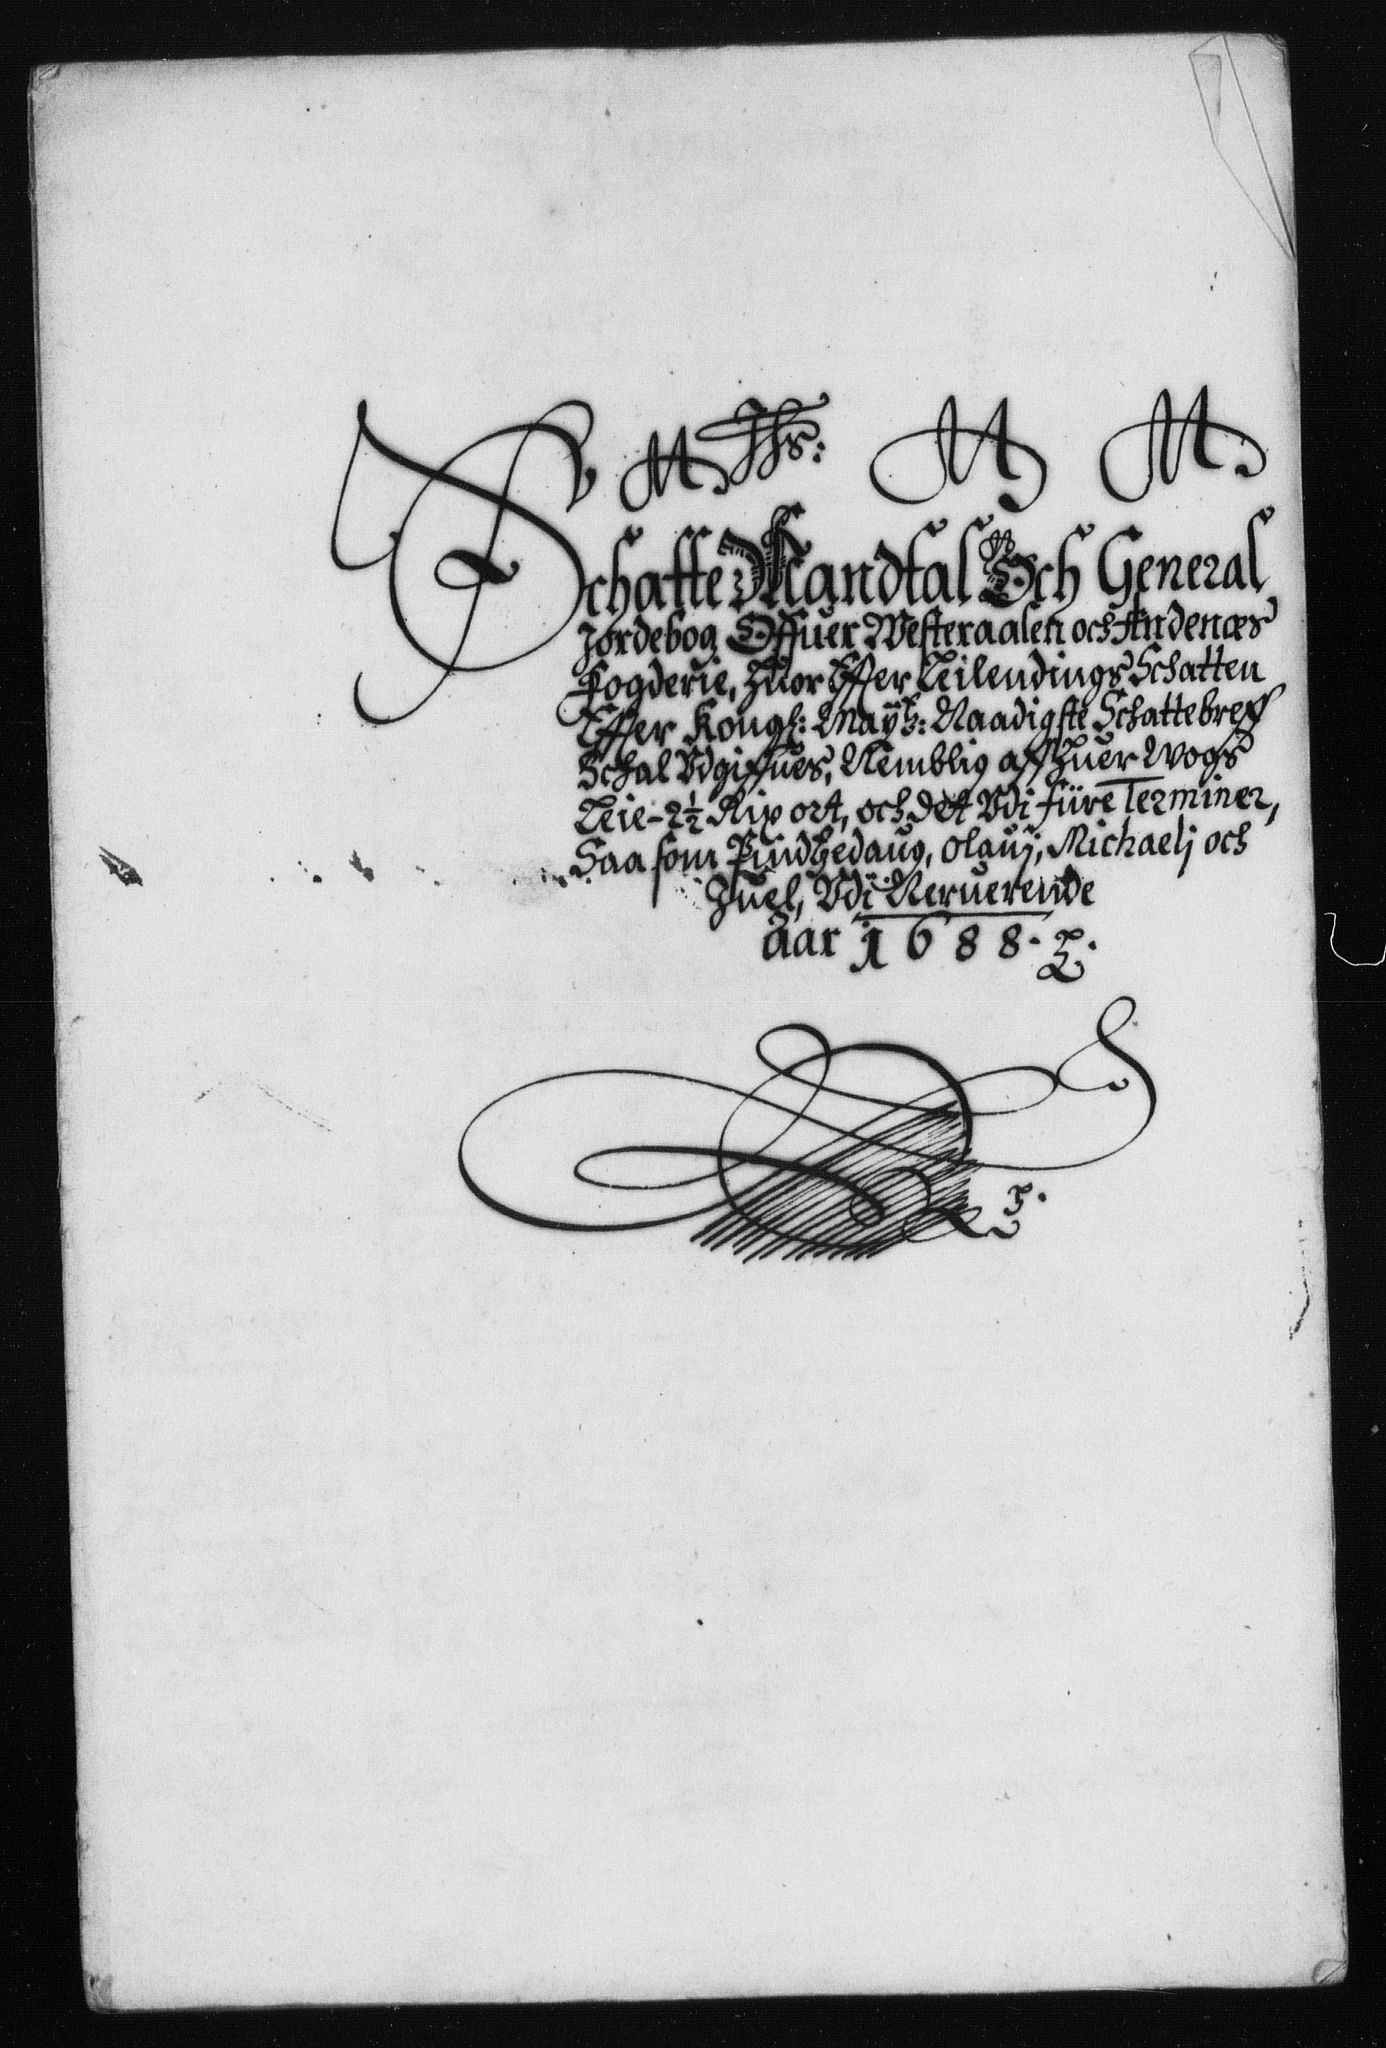 Jhs:
Schatte Mandtal Och General
Jordebog Offuer Westeraalen och Andenæs
Fogderie, Huor Effter Leilendings Schatten
Effter Kongl: Mayts: Naadigste Schattebreff
Schal Vdgiffues, Nemblig aff Huer Wogs
Leie - 2½ Rix ort, och det Vdi füre Terminer,
Saa som Pindtzedaug, Olauj, Michaelj och
Juel, Vdi Neruerende
aar 1688.